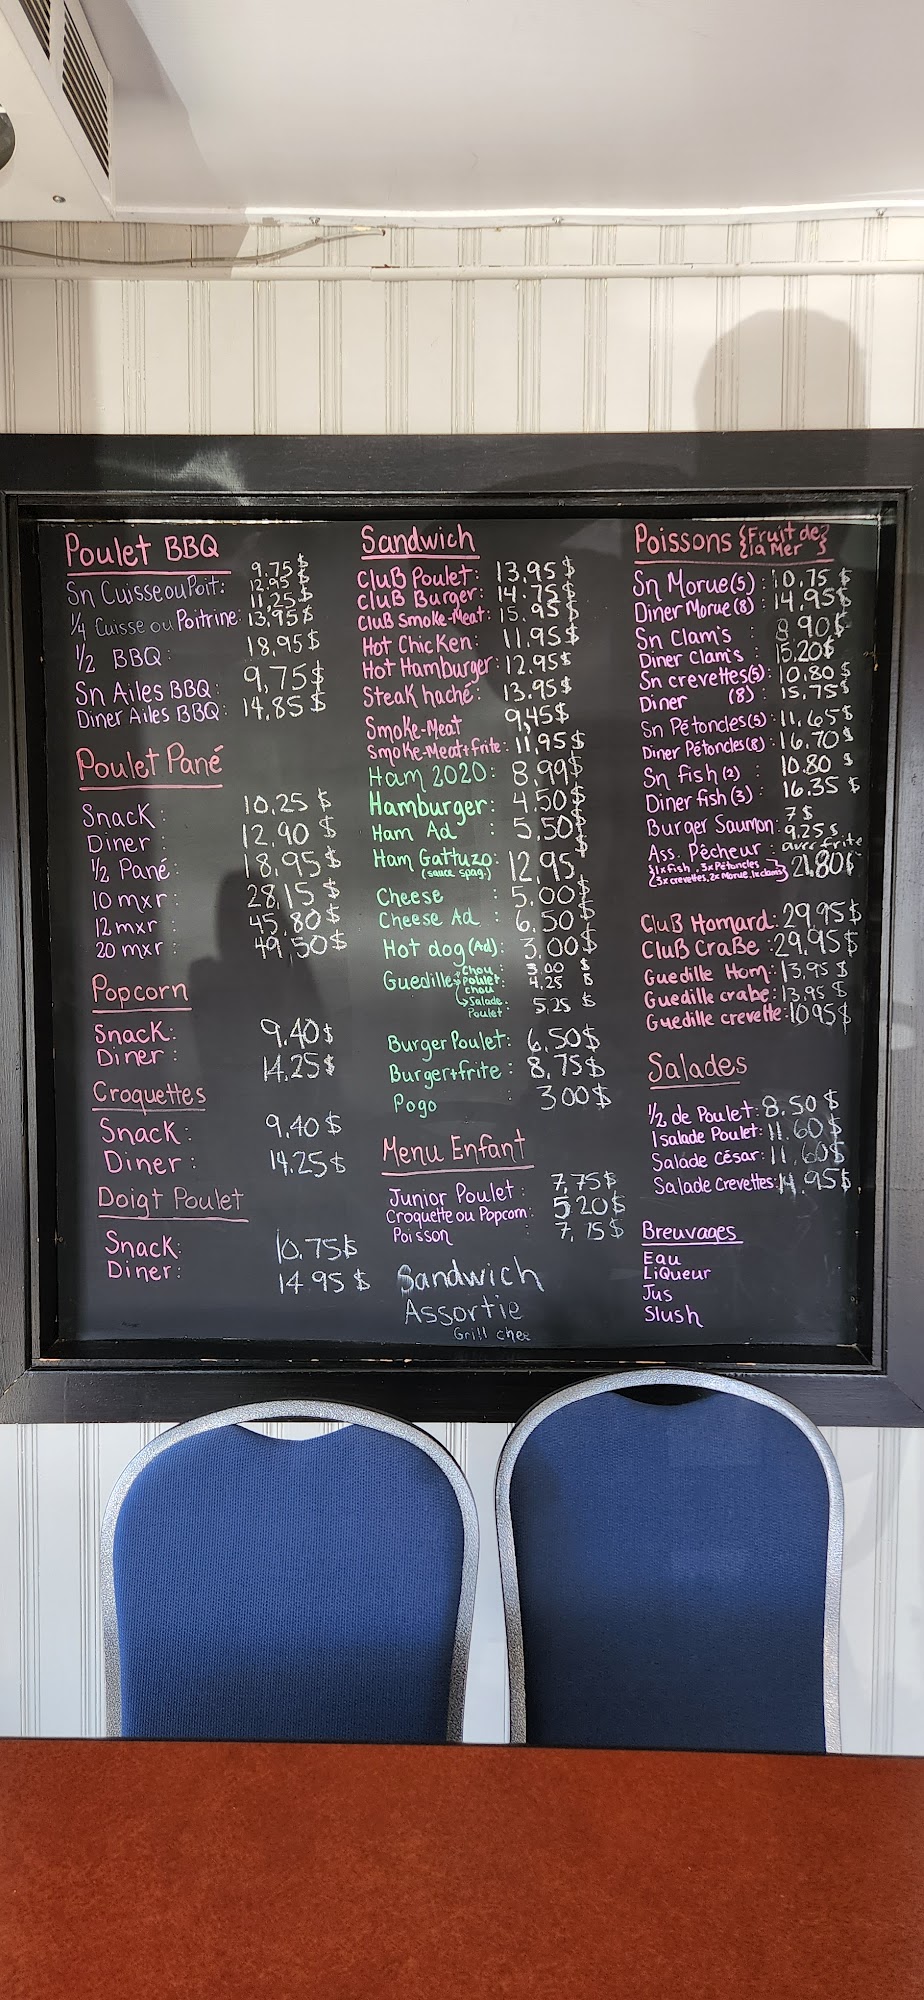 Poulet BBQ
Sn Cuisse ou Poit: 9.75$ 12.95$
1/4 Cuisse ou Poitrine: 11.25$ 13,95$
1/2 BBQ : 18,95$
Sn Ailes BBQ: 9,75$
Diner Ailes BBQ: 14.85$
Poulet Pané
Snack : 10.25 $
Diner : 12,90 $
1/2 Pané: 18,95$
10 mxr : 28,15$
12 mxr : 45,80$
20 mxr : 49,50$
Popcorn
Snack: 9.40$
Diner : 14.25$
Croquettes
Snack: 9,40$
Diner : 14,25$
Doigt Poulet
Snack: 10.75$
Diner: 14.95 $
Sandwich
Club Poulet: 13,95$
Club Burger: 14.75$
Club Smoke-Meat: 15.95$
Hot Chicken: 11,95$
Hot Hamburger: 12,95$
Steak haché: 13,95$
Smoke-Meat 9,45$
Smoke-Meat+frite: 11,95$
Ham 2020: 8,99$
Hamburger: 4,50$
Ham Ad : 5,50$
Ham Gattuzo: 12,95$
(sauce spag.)
Cheese : 5,00$
Cheese Ad : 6,50$
Hot dog (Ad): 3,00$
Guedille Chou: 3.00 $
Poulet chou: 4,25 $
Salade Poulet: 5,25 $
Burger Poulet: 6,50$
Burger+frite: 8,75$
Pogo 300$
Menu Enfant
Junior Poulet : 7,75$
Croquette ou Popcorn: 520$
Poisson : 7,75$
Sandwich
Assortie
Grill chee
Poissons {Fruit de la Mer}
Sn Morue (5) : 10,75 $
Diner Morue (8) : 14,95$
Sn Clam's : 8,90$
Diner Clam's : 15,20$
Sn crevettes(5): 10,80$
Diner (8) : 15,75$
Sn Pétoncles(5): 11,65$
Diner Pétoncles(8): 16.70$
Sn fish (2) : 10.80 $
Diner fish (3) : 16.35 $
Burger Saumon: 7$ 9.25$ avec frite
Ass. Pêcheur :
{1x fish, 3x Pétoncles
3x crevettes, 2x Morue, 1x clams} 21.80$
Club Homard: 29,95$
Club Crabe : 29.95$
Guedille Hom: 13,95 $
Guedille crabe: 13,95 $
Guedille crevette: 1095$
Salades
1/2 de Poulet: 8.50$
1 salade Poulet: 11.60$
Salade César: 11,60$
Salade Crevettes: 14,95$
Breuvages
Eau
LiQueur
Jus
Slush